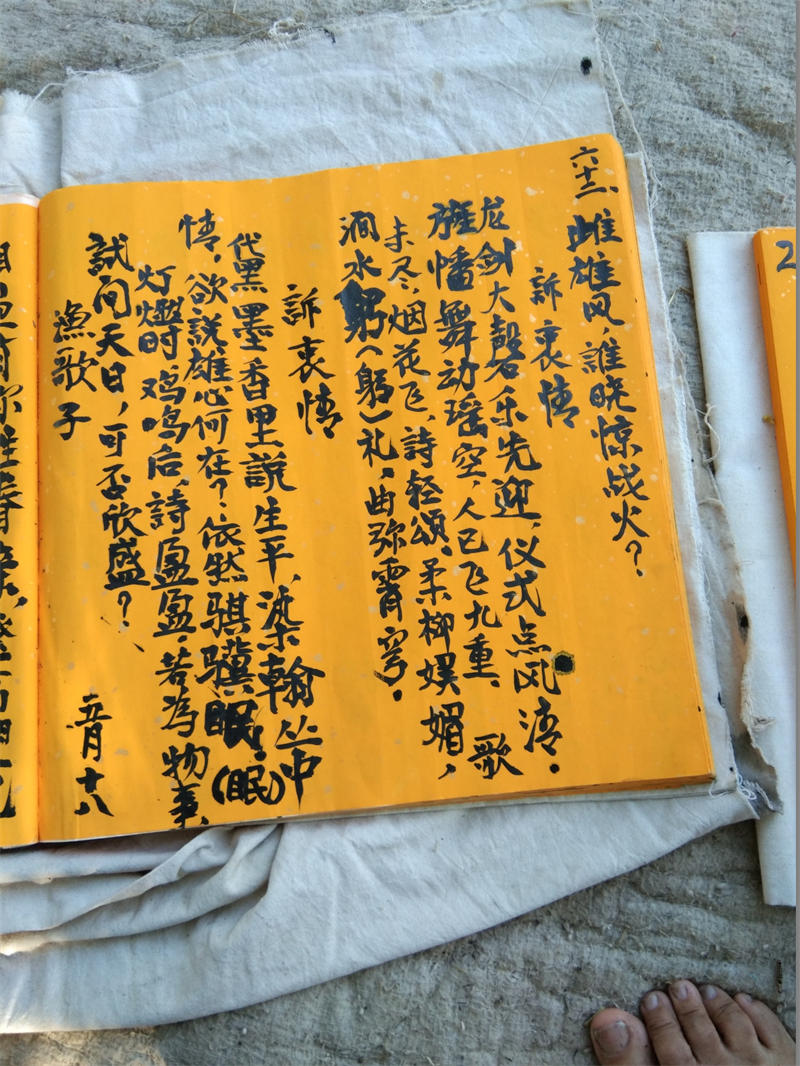 六十二、
雌雄风，誰晓惊战火？
訴衷情
龙剑大磬乐先迎，仪式点风清。
旌幡舞动瑶空，人已飞九重。歌
未尽，烟花飞，詩轻颂。柔柳娱媚，
涧水躬（躬）礼，曲弥霄穹。
訴衷情
代黑墨香里説生平，染翰丛中
情，欲説雄心何在？依然骐骥眠！（眠）
灯燃时，鸡鸣后，詩盈盈，若為物事，
試问天日，可否欣盛？
漁歌子
五月十八